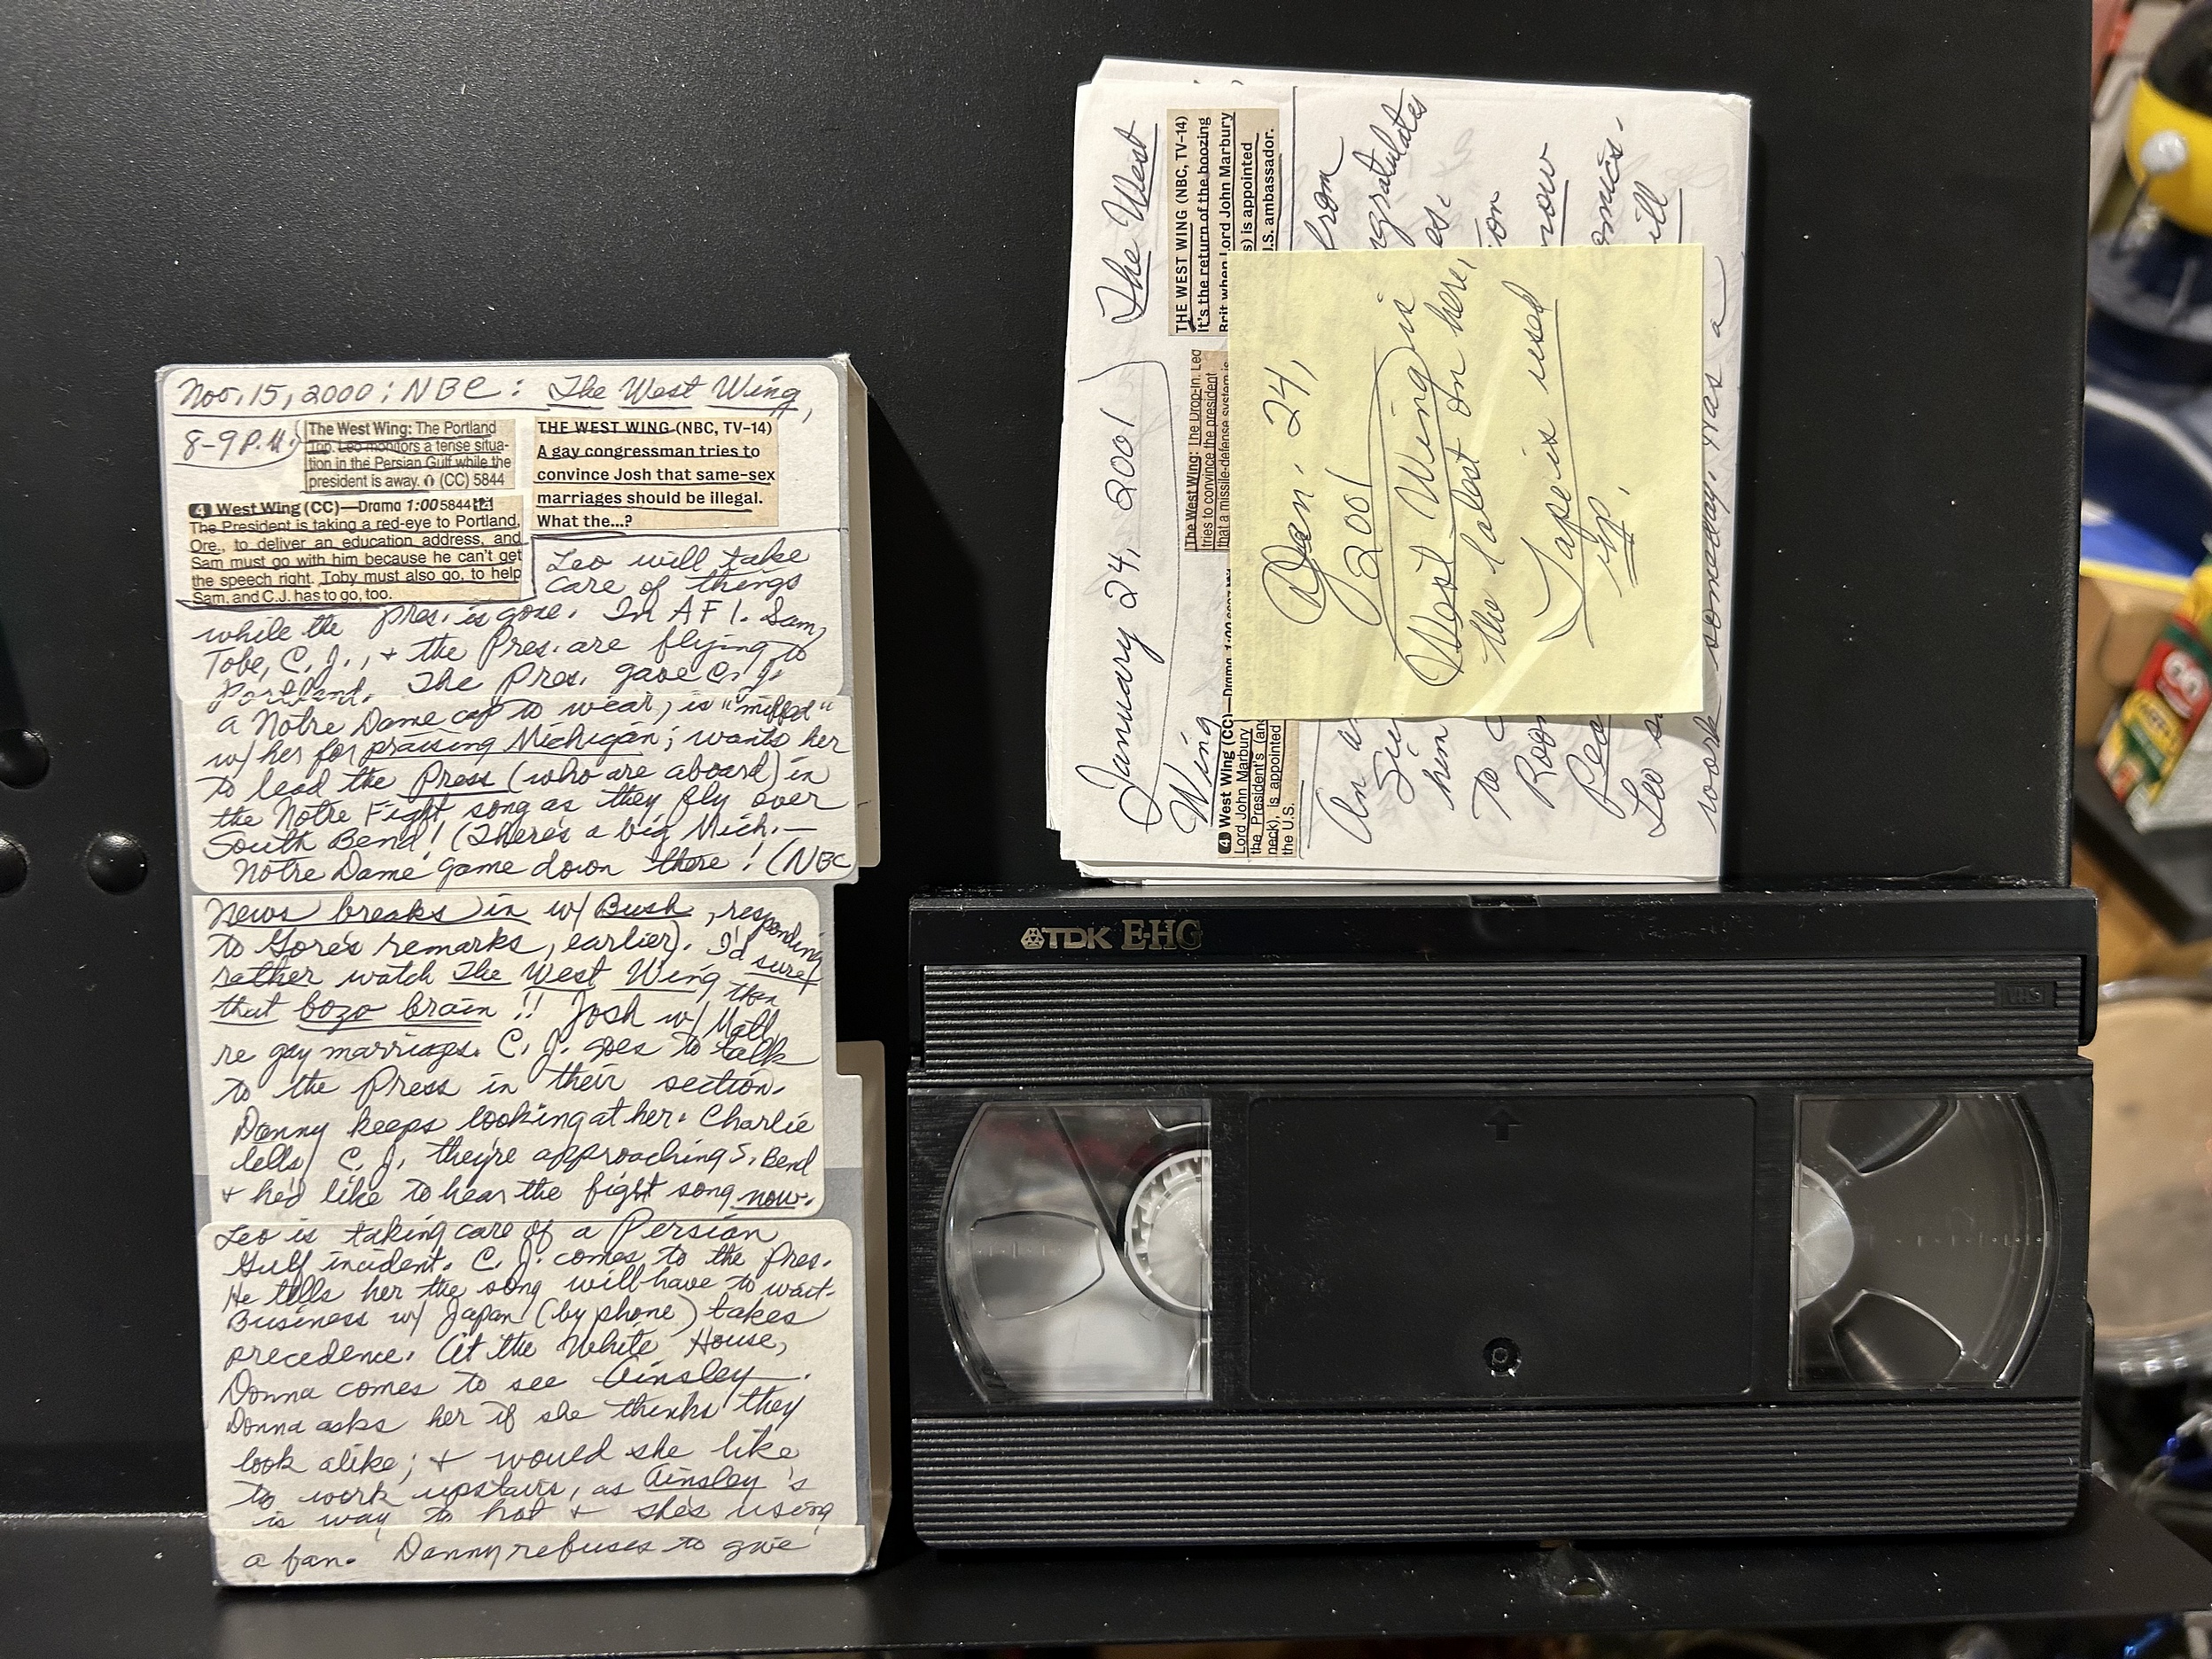 Nov. 15, 2000; NBC: The West Wing,
8-9 P.M.
The West Wing: The Portland
Trip. Leo monitors a tense situa-
tion in the Persian Gulf while the
president is away. (CC) 5844
THE WEST WING (NBC, TV-14)
A gay congressman tries to
convince Josh that same-sex
marriages should be illegal.
What the...?
4 West Wing (CC)—Drama 1:00 5844 14
The President is taking a red-eye to Portland,
Ore., to deliver an education address, and
Sam must go with him because he can't get
the speech right. Toby must also go, to help
Sam, and C.J. has to go, too.
Leo will take
care of things
while the pres. is gone. In AF1. Sam,
Tobe, C.J., + the Pres. are flying to
Portland. The Pres. gave C.J.
a Notre Dame cap to wear, is "miffed"
w/ her for praising Michigan; wants her
to lead the Press (who are aboard) in
the Notre Fight song as they fly over
South Bend! (There's a big Mich.—
Notre Dame game down there! (NBC
News breaks in w/ Bush, responding
to Gore's remarks, earlier). I'd sure
rather watch The West Wing than
that bozo brain!! Josh w/ Matt
re gay marriages. C.J. goes to talk
to the Press in their section.
Danny keeps looking at her. Charlie
tells C.J. they're approaching S. Bend
+ he'd like to hear the fight song now.
Leo is taking care of a Persian
Gulf incident. C.J. comes to the Pres.
He tells her the song will have to wait.
Business w/ Japan (by phone) takes
precedence. At the White House,
Donna comes to see Ainsley.
Donna asks her if she thinks they
look alike; + would she like
to work upstairs, as Ainsley's
is way to hot + she's using
a fan. Danny refuses to give
January 24, 2001) The West
Wing
THE WEST WING (NBC, TV-14)
It's the return of the boozing
Brit when Lord John Marbury
s) is appointed
U.S. ambassador.
The West Wing: The Drop-In. Leo
tries to convince the president
that a missile-defense system is
4 West Wing (CC)—Drama 1:00
Lord John Marbury
the President's (and
neck), is appointed
the U.S.
An from
ngratulates
him es.
To ion
Room now
Pea omics.
Leo s ill
work someday. Was a
Jan. 24,
2001
West Wing is
the latest on here,
Tape is used
up.
TDK E-HG
VHS